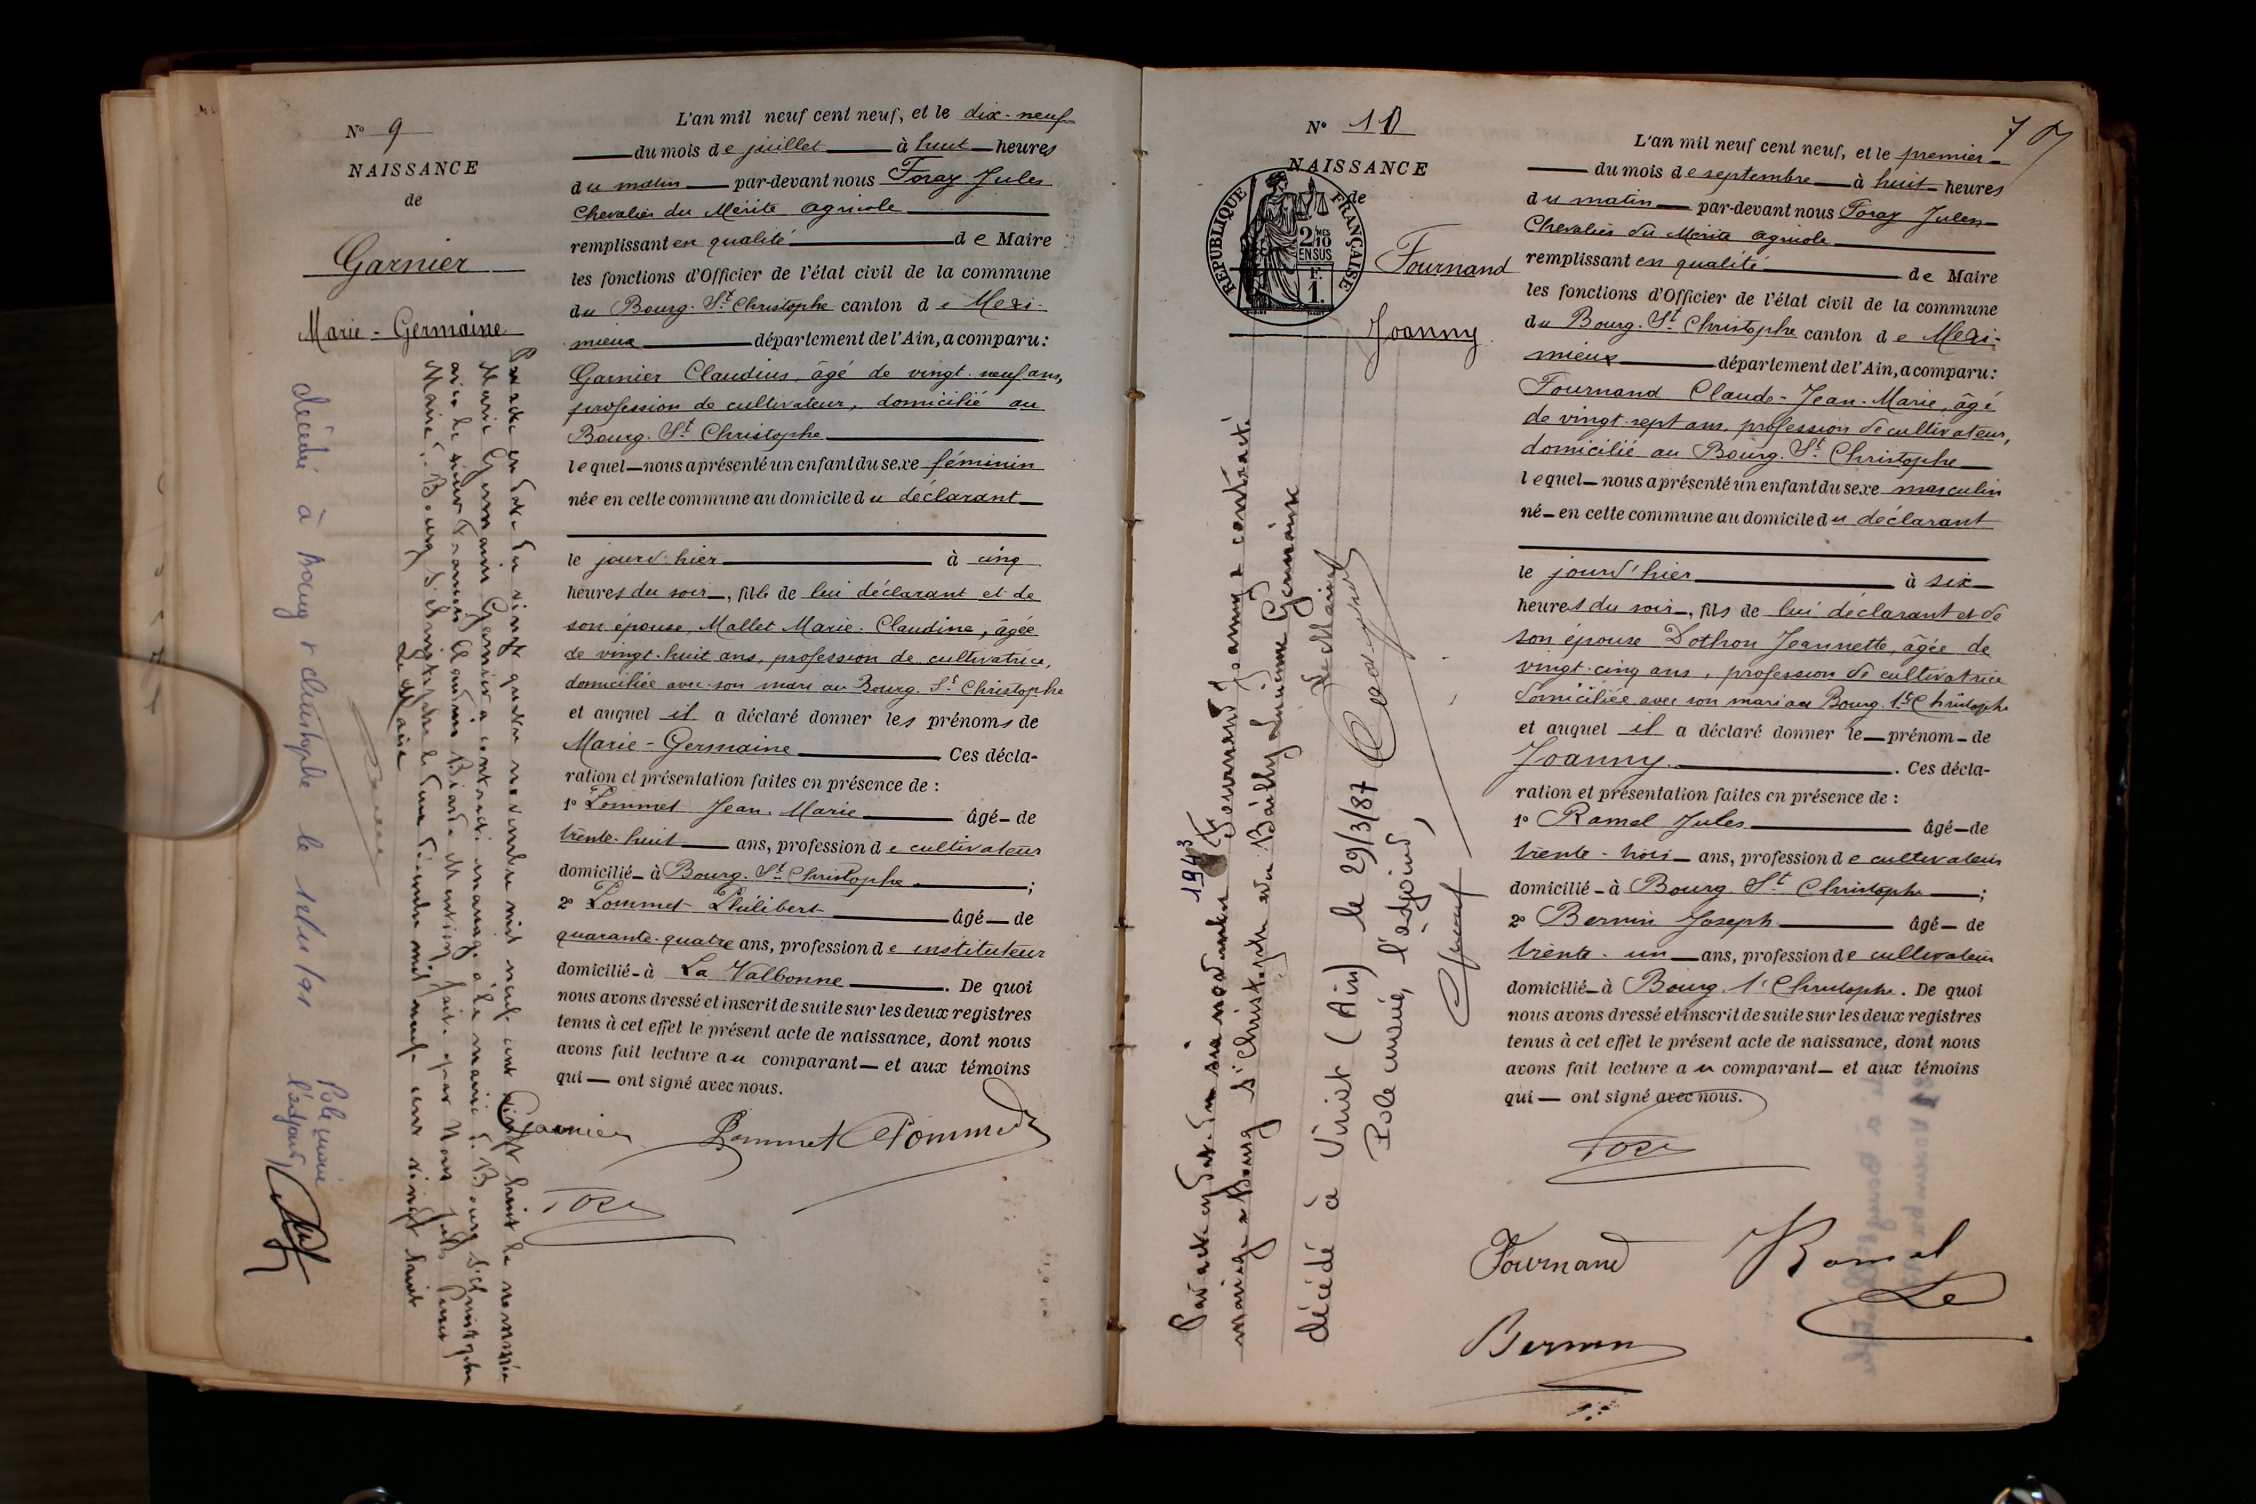 N° 9
NAISSANCE
de
Garnier
Marie-Germaine
L'an mil neuf cent neuf, et le dix-neuf
du mois de juillet à huit heures
du matin par-devant nous Foray Jules
Chevalier du Mérite agricole
remplissant en qualité de Maire
les fonctions d'Officier de l'état civil de la commune
du Bourg-St Christophe canton de Mexi-
mieux département de l'Ain, a comparu :
Garnier Claudius, âgé de vingt-neuf ans,
profession de cultivateur, domicilié au
Bourg-St Christophe
lequel nous a présenté un enfant du sexe féminin
née en cette commune au domicile du déclarant
le jourd'hier à cinq
heures du soir, fille de lui déclarant et de
son épouse, Mallet Marie-Claudine, âgée
de vingt-huit ans, profession de cultivatrice,
domiciliée avec son mari au Bourg-St Christophe
et auquel il a déclaré donner les prénoms de
Marie-Germaine Ces décla-
ration et présentation faites en présence de :
1° Pommet Jean-Marie âgé de
trente-huit ans, profession de cultivateur
domicilié à Bourg-St Christophe ;
2° Pommet Philibert âgé de
quarante-quatre ans, profession de instituteur
domicilié à La Valbonne . De quoi
nous avons dressé et inscrit de suite sur les deux registres
tenus à cet effet le présent acte de naissance, dont nous
avons fait lecture au comparant et aux témoins
qui ont signé avec nous.
Garnier Pommet Pommet
Foray
Par acte en date du vingt quatre novembre mil neuf cent vingt huit la nommée
Marie Germaine Garnier a contracté mariage à la mairie de Bourg St Christophe
avec le sieur François Claudius Mention faite par Nous
Maire de Bourg St Christophe le décembre mil neuf cent vingt huit
Le Maire
décédé à Bourg St Christophe le
Pole
l'adjoint
N° 10
NAISSANCE
de
REPUBLIQUE FRANÇAISE
2/10 MES
EN SUS
F.
1.
Fournand
Joanny
70
L'an mil neuf cent neuf, et le premier
du mois de septembre à huit heures
du matin par-devant nous Foray Jules,
Chevalier du Mérite agricole
remplissant en qualité de Maire
les fonctions d'Officier de l'état civil de la commune
du Bourg-St Christophe canton de Mexi-
mieux département de l'Ain, a comparu :
Fournand Claude-Jean-Marie, âgé
de vingt-sept ans, profession de cultivateur,
domicilié au Bourg-St Christophe
lequel nous a présenté un enfant du sexe masculin
né en cette commune au domicile du déclarant
le jourd'hier à six
heures du soir, fils de lui déclarant et de
son épouse Dothon Jeannette, âgée de
vingt-cinq ans, profession de cultivatrice
domiciliée avec son mari au Bourg-St Christophe
et auquel il a déclaré donner le prénom de
Joanny . Ces décla-
ration et présentation faites en présence de :
1° Ramel Jules âgé de
trente-trois ans, profession de cultivateur
domicilié à Bourg St Christophe ;
2° Bernin Joseph âgé de
trente-un ans, profession de cultivateur
domicilié à Bourg St Christophe. De quoi
nous avons dressé et inscrit de suite sur les deux registres
tenus à cet effet le présent acte de naissance, dont nous
avons fait lecture au comparant et aux témoins
qui ont signé avec nous.
Foray
Fournand Ramel
Bernin
Par acte en date du six novembre 1943 Fournand Joanny a contracté
mariage à Bourg St Christophe avec Bailly Germaine
Le Maire
décédé à Viriat (Ain) le 29/3/87
l'adjoint,